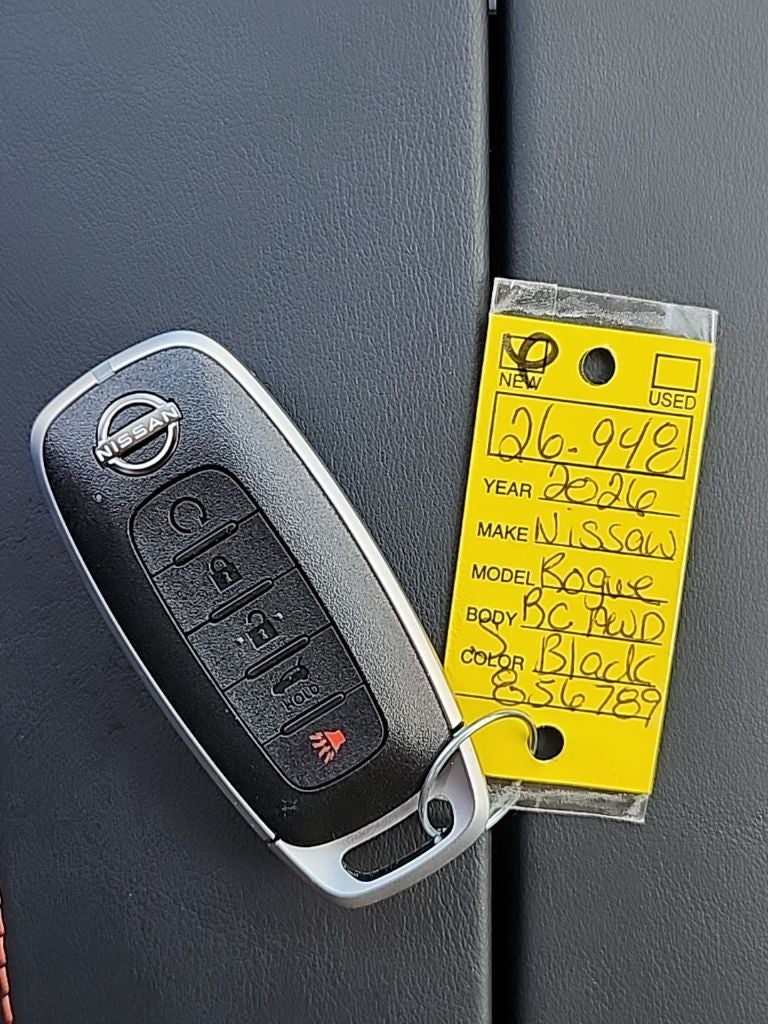 NISSAN
HOLD
NEW
USED
26-948
YEAR 2026
MAKE Nissan
MODEL Rogue
BODY RC AWD
COLOR Black
S 856789